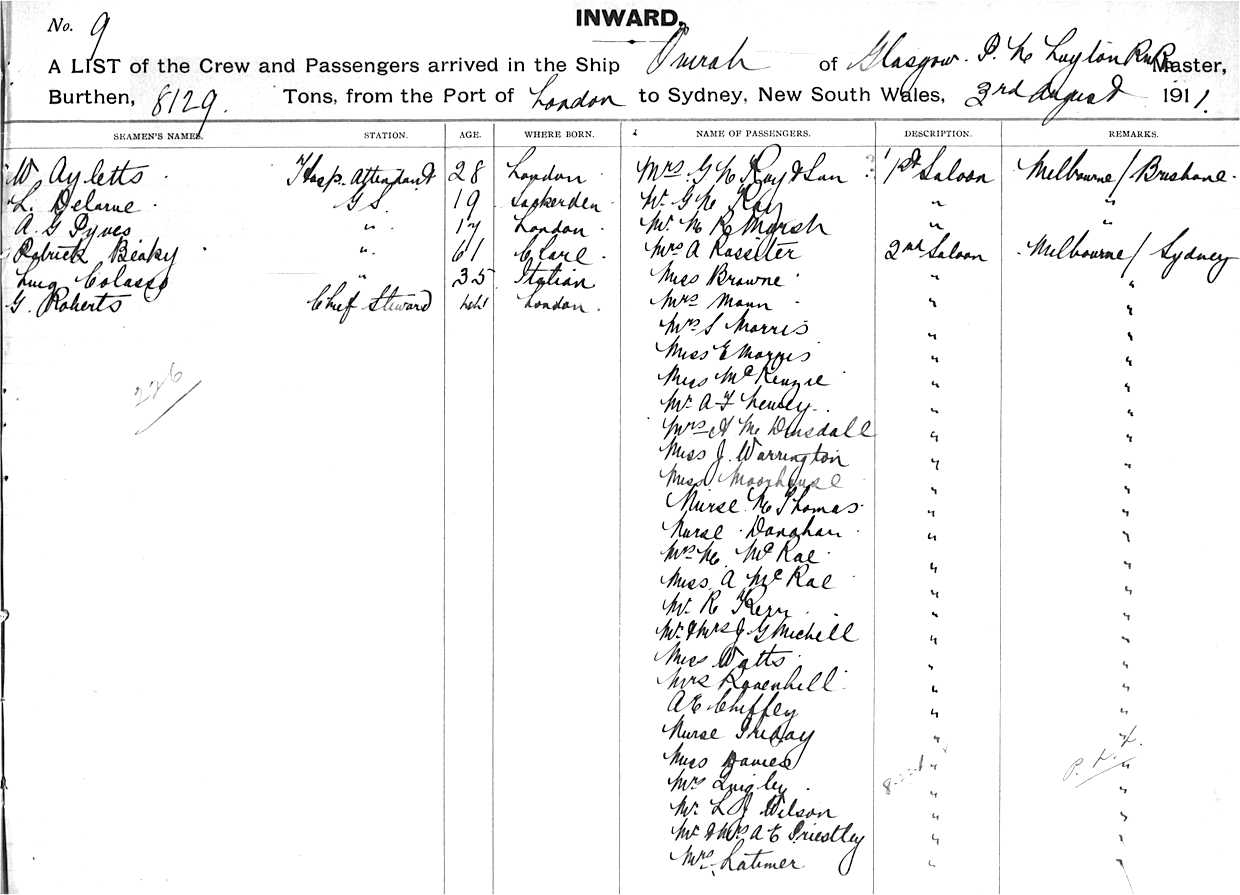 No. 9
INWARD.
A LIST of the Crew and Passengers arrived in the Ship Omrah of Glasgow. P. N Layton RNR Master,
Burthen, 8129. Tons, from the Port of London to Sydney, New South Wales, 3rd August 1911.
SEAMEN'S NAMES. STATION. AGE. WHERE BORN. NAME OF PASSENGERS. DESCRIPTION. REMARKS.
W Ayletts Hosp. Attendant 28 London Mrs G N Roy & Son 1st Saloon Melbourne/Brisbane
L. Delarue G.S. 19 Mr G N Roy " "
A. G Pyves " 17 London Mr N R Marsh "
Patrick Beaky " 61 Clare Mrs A Rossiter 2nd Saloon Melbourne/Sydney
Luig Colasso " 35 Italian Miss Browne " "
G. Roberts Chief Steward 44 London Mrs Mann " "
Mrs S Morris " "
Miss E Morris " "
226 Miss McKenzie " "
Mr A F " "
Mrs A M Dinsdall " "
Miss J. Warrington " "
Miss Moorhouse " "
Nurse N Thomas " "
Nurse Donohan " "
Mrs N. McRae " "
Miss A McRae " "
Mr R Kerr " "
Mr & Mrs J G Michell " "
Miss Watts " "
Mrs Ravenhill " "
A E Chiffey " "
Nurse Friday " "
Miss Davies " "
Mrs Quigley " "
Mr L J Wilson " "
Mr & Mrs A E Priestley " "
Mrs Latimer " "